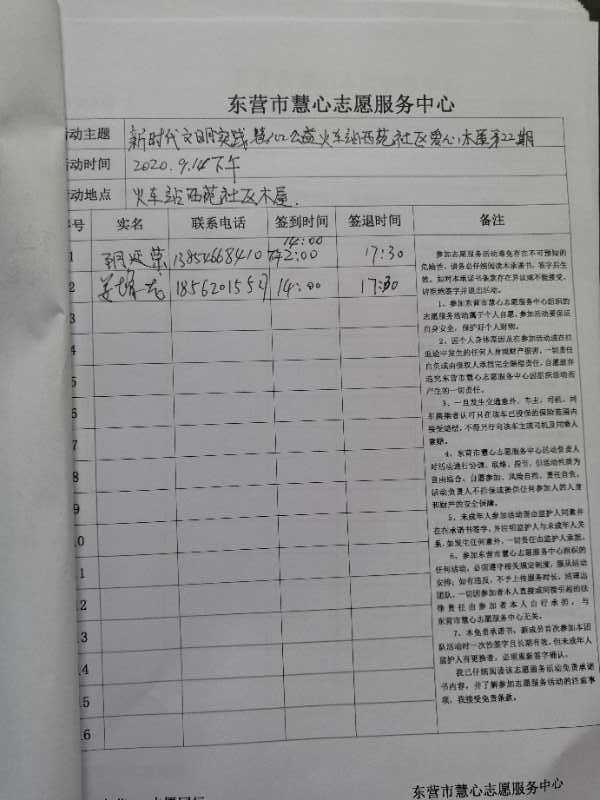 东营市慧心志愿服务中心
活动主题 新时代文明实践慧心公益火车站西苑社区爱心木屋第22期
活动时间 2020.9.14下午
活动地点 火车站西苑社区木屋.
号 实名 联系电话 签到时间 签退时间 备注
14:00
1 13854668410 2:00 17:30
2 14:00 17:30
3
4
5
6
7
8
9
10
11
12
13
14
15
16
参加志愿服务活动难免存在不可预知的
危险性，请务必仔细阅读本承诺书，签字后生
效。如对本承诺书条款存在异议或不能接受，
请拒绝签字并退出活动。
1、参加东营市慧心志愿服务中心组织的
志愿服务活动属于个人自愿，参加活动要保证
自身安全，保护好个人财物。
2、因个人身体原因及在参加活动或在往
返途中发生的任何人身或财产损害，一切责任
自负或由侵权人承担完全赔偿责任，自愿放弃
追究东营市慧心志愿服务中心因组织活动而
产生的一切责任。
3、一旦发生交通意外，车主、司机、同
车搭乘者认可只在该车已投保的保险范围内
接受赔偿，不得另行向该车主或司机及同乘人
索赔。
4、东营市慧心志愿服务中心活动负责人
对活动进行分调、联络、指引，但活动性质为
自由结合、自愿参加、风险自担、责任自负，
活动负责人不担保或提供任何参加人的人身
和财产的安全保障。
5、未成年人参加活动需由监护人同意并
在在承诺书签字，并注明监护人与未成年人关
系，如发生任何意外，一切责任由监护人承担。
6、参加东营市慧心志愿服务中心组织的
任何活动，必须遵守相关规定制度，服从活动
安排；如有违反，不予上传服务时长，清理出
团队，一切因参加者本人直接或间接引起的法
律责任由参加者本人自行承担，与
东营市慧心志愿服务中心无关。
7、本免责承诺书，新成员首次参加本团
队活动时一次性签字且长期有效，但未成年人
监护人有更换者，必须重新签字确认。
我已仔细阅读该志愿服务活动免责承诺
书内容，并了解参加志愿服务活动的注意事
项，我接受免责条款。
东营市慧心志愿服务中心